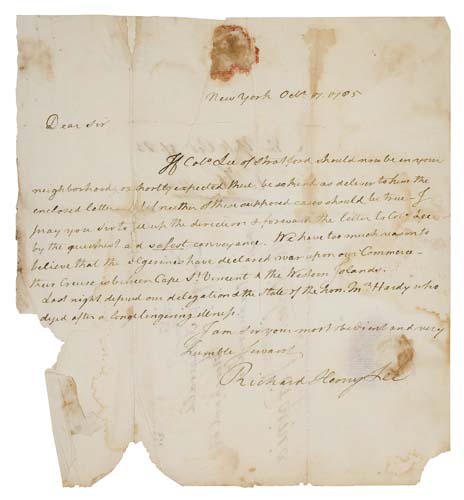 New York Octr. 17. 1785
Dear Sir
If Colo. Lee of Stratford should now be in your
neighborhood, or shortly expected there, be so kind as deliver to him the
enclosed letter. neither of these supposed cases should be true I
pray you Sir to up the direction & forward the letter to Colo. Lee
by the quickest and safest conveyance. We have too much reason to
believe that the Algerines have declared war upon our Commerce
their Cruise is between Cape St. Vincent & the Western Islands.
Last night our delegation & the State of the Hon. Mr. Hardy who
dyed after a long lingering illness.
I am Sir your most obedient and very
humble Servant
Richard Henry Lee